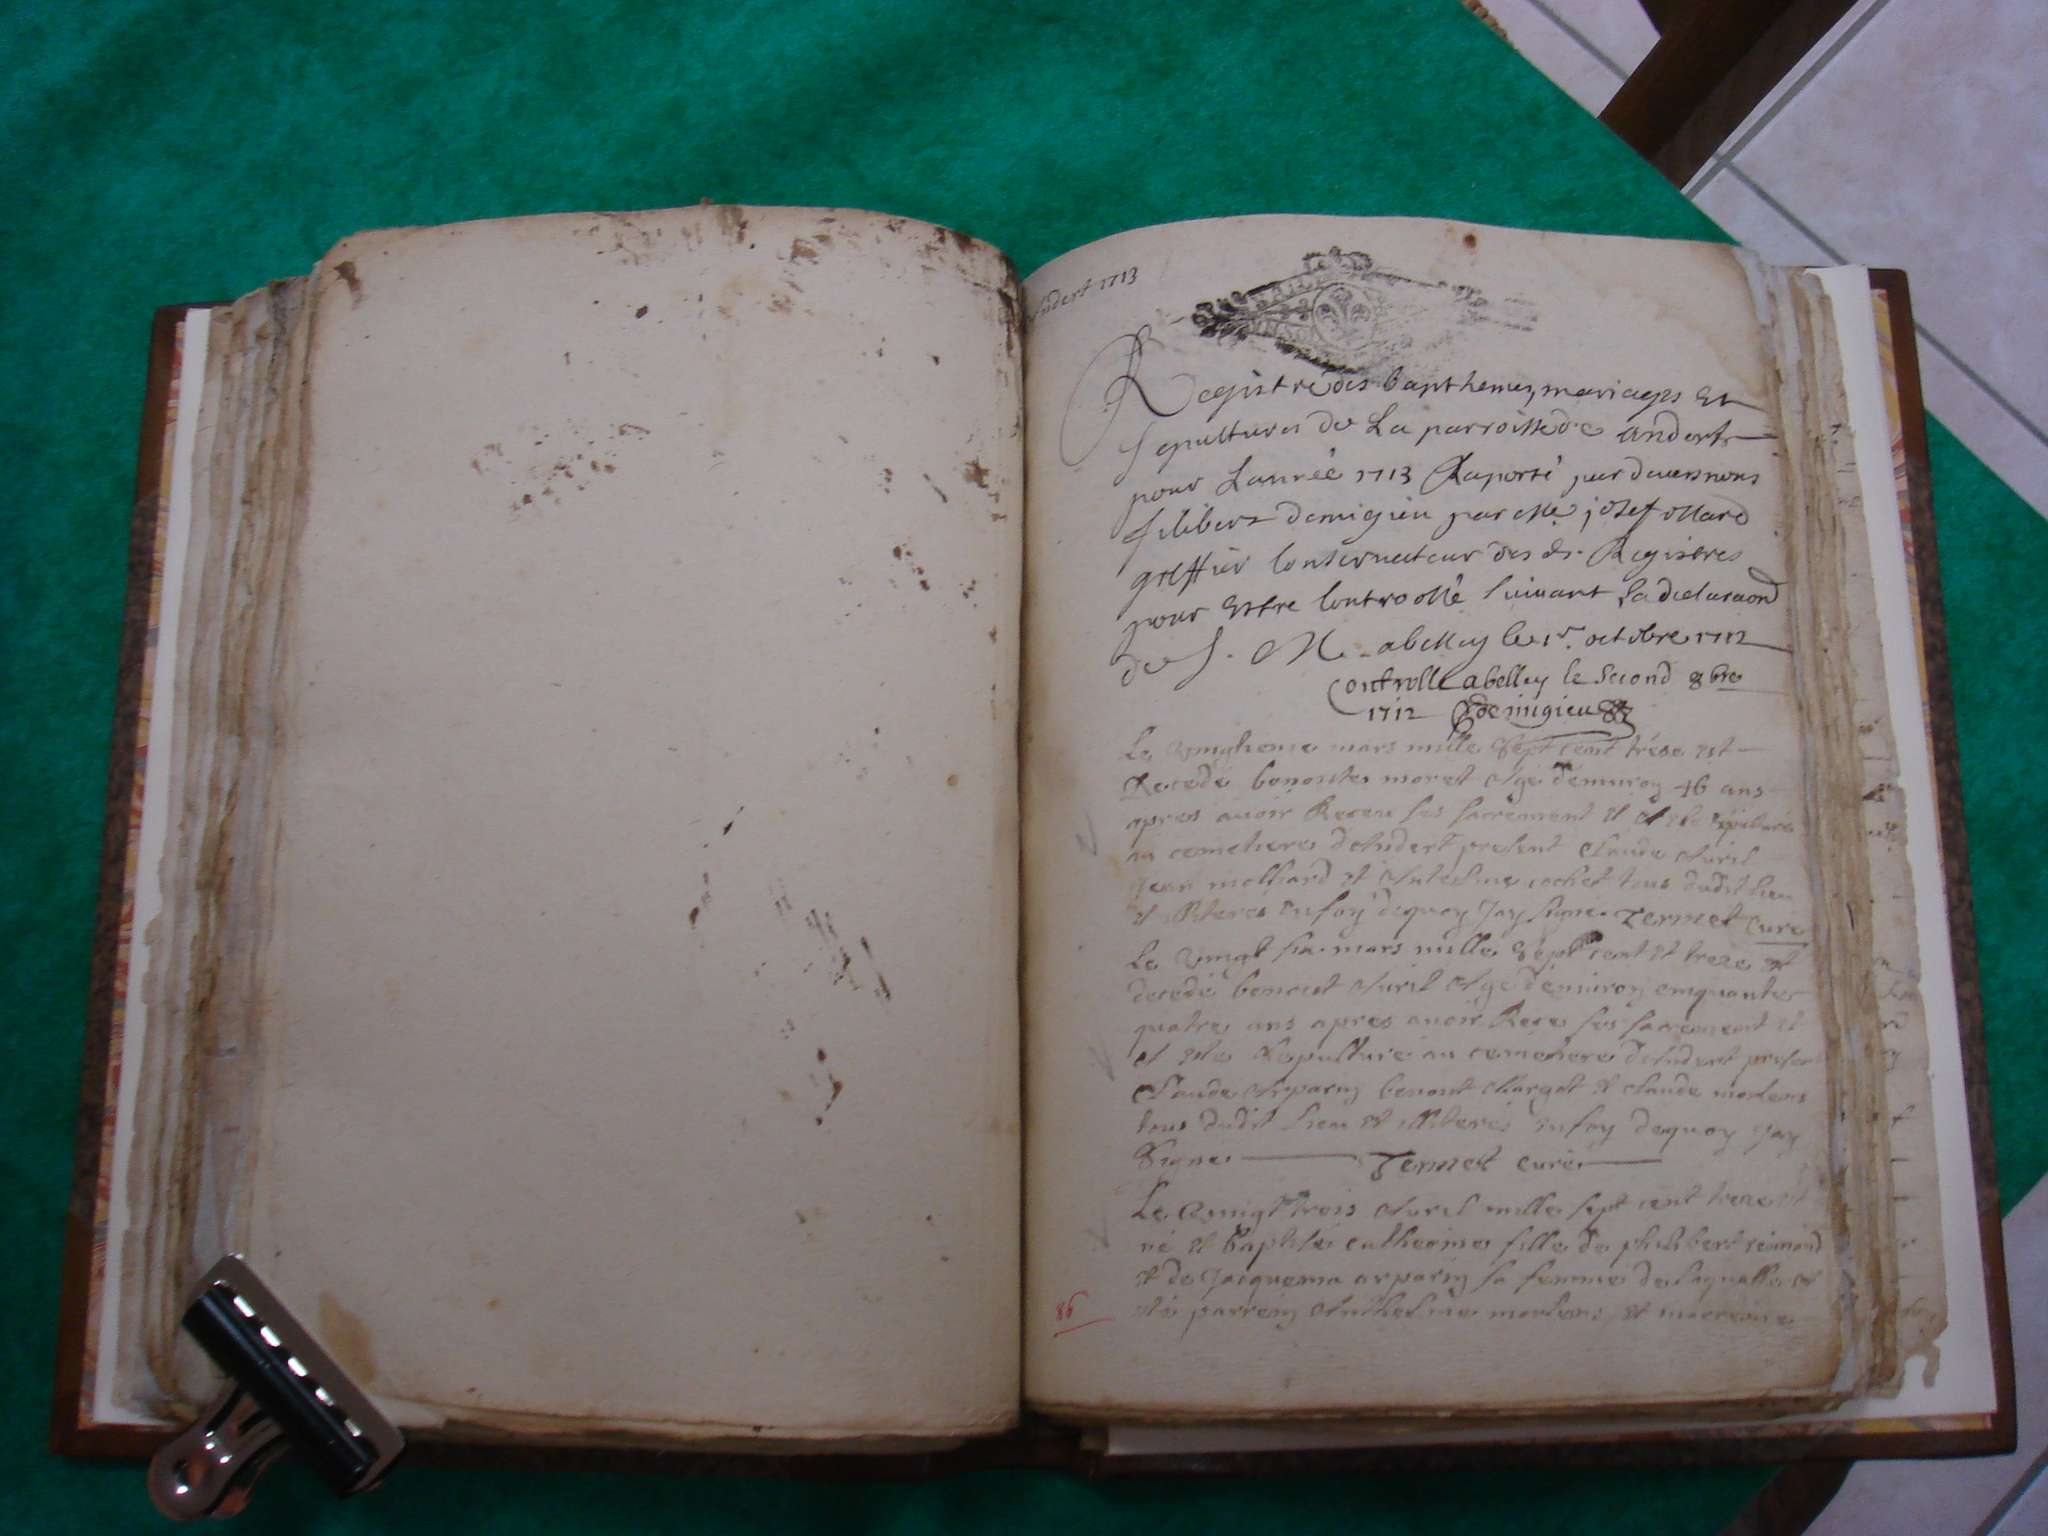 Andert 1713
Registre des bapthemes, mariages Et
sepultures de La parroisse de Andert
pour Lannée 1713 Raporté par devers nous
filibert demigieu par Me josef ollard
greffier Conservateur des ds. Registres
pour Estre Controollé suivant la
de S. M. abelley le 1r. octobre 1712
Controllé abelley le second 8bre
1712 demigieu
Le mars mille sept cent tréze est
decedé moret Agé denuiron 46 ans
apres auoir Receu ses sacrement et a este
au cemetiere dAndert present Claude Auril
Jean molliard et Antelme cochet tous dudit lieu
et illiteres en foy dequoy Jay signé. Termet Curé
Le vingt six mars mille sept cent et treze est
decedé benoit Auril Agé denuiron cinquante
quatre ans apres auoir Rece ses sacrement et
a este sepulture au cemetiere dAndert present
Claude Arparin benoit et claude
tous dudit lieu et illiteres en foy dequoy Jay
Signé Termet curé
Le vingt trois Auril mille sept cent treze est
né et baptisé catherine fille de philibert
et de Jacquema arparin sa femme de laquelle a
esté parrein Anthelme et marreine
86